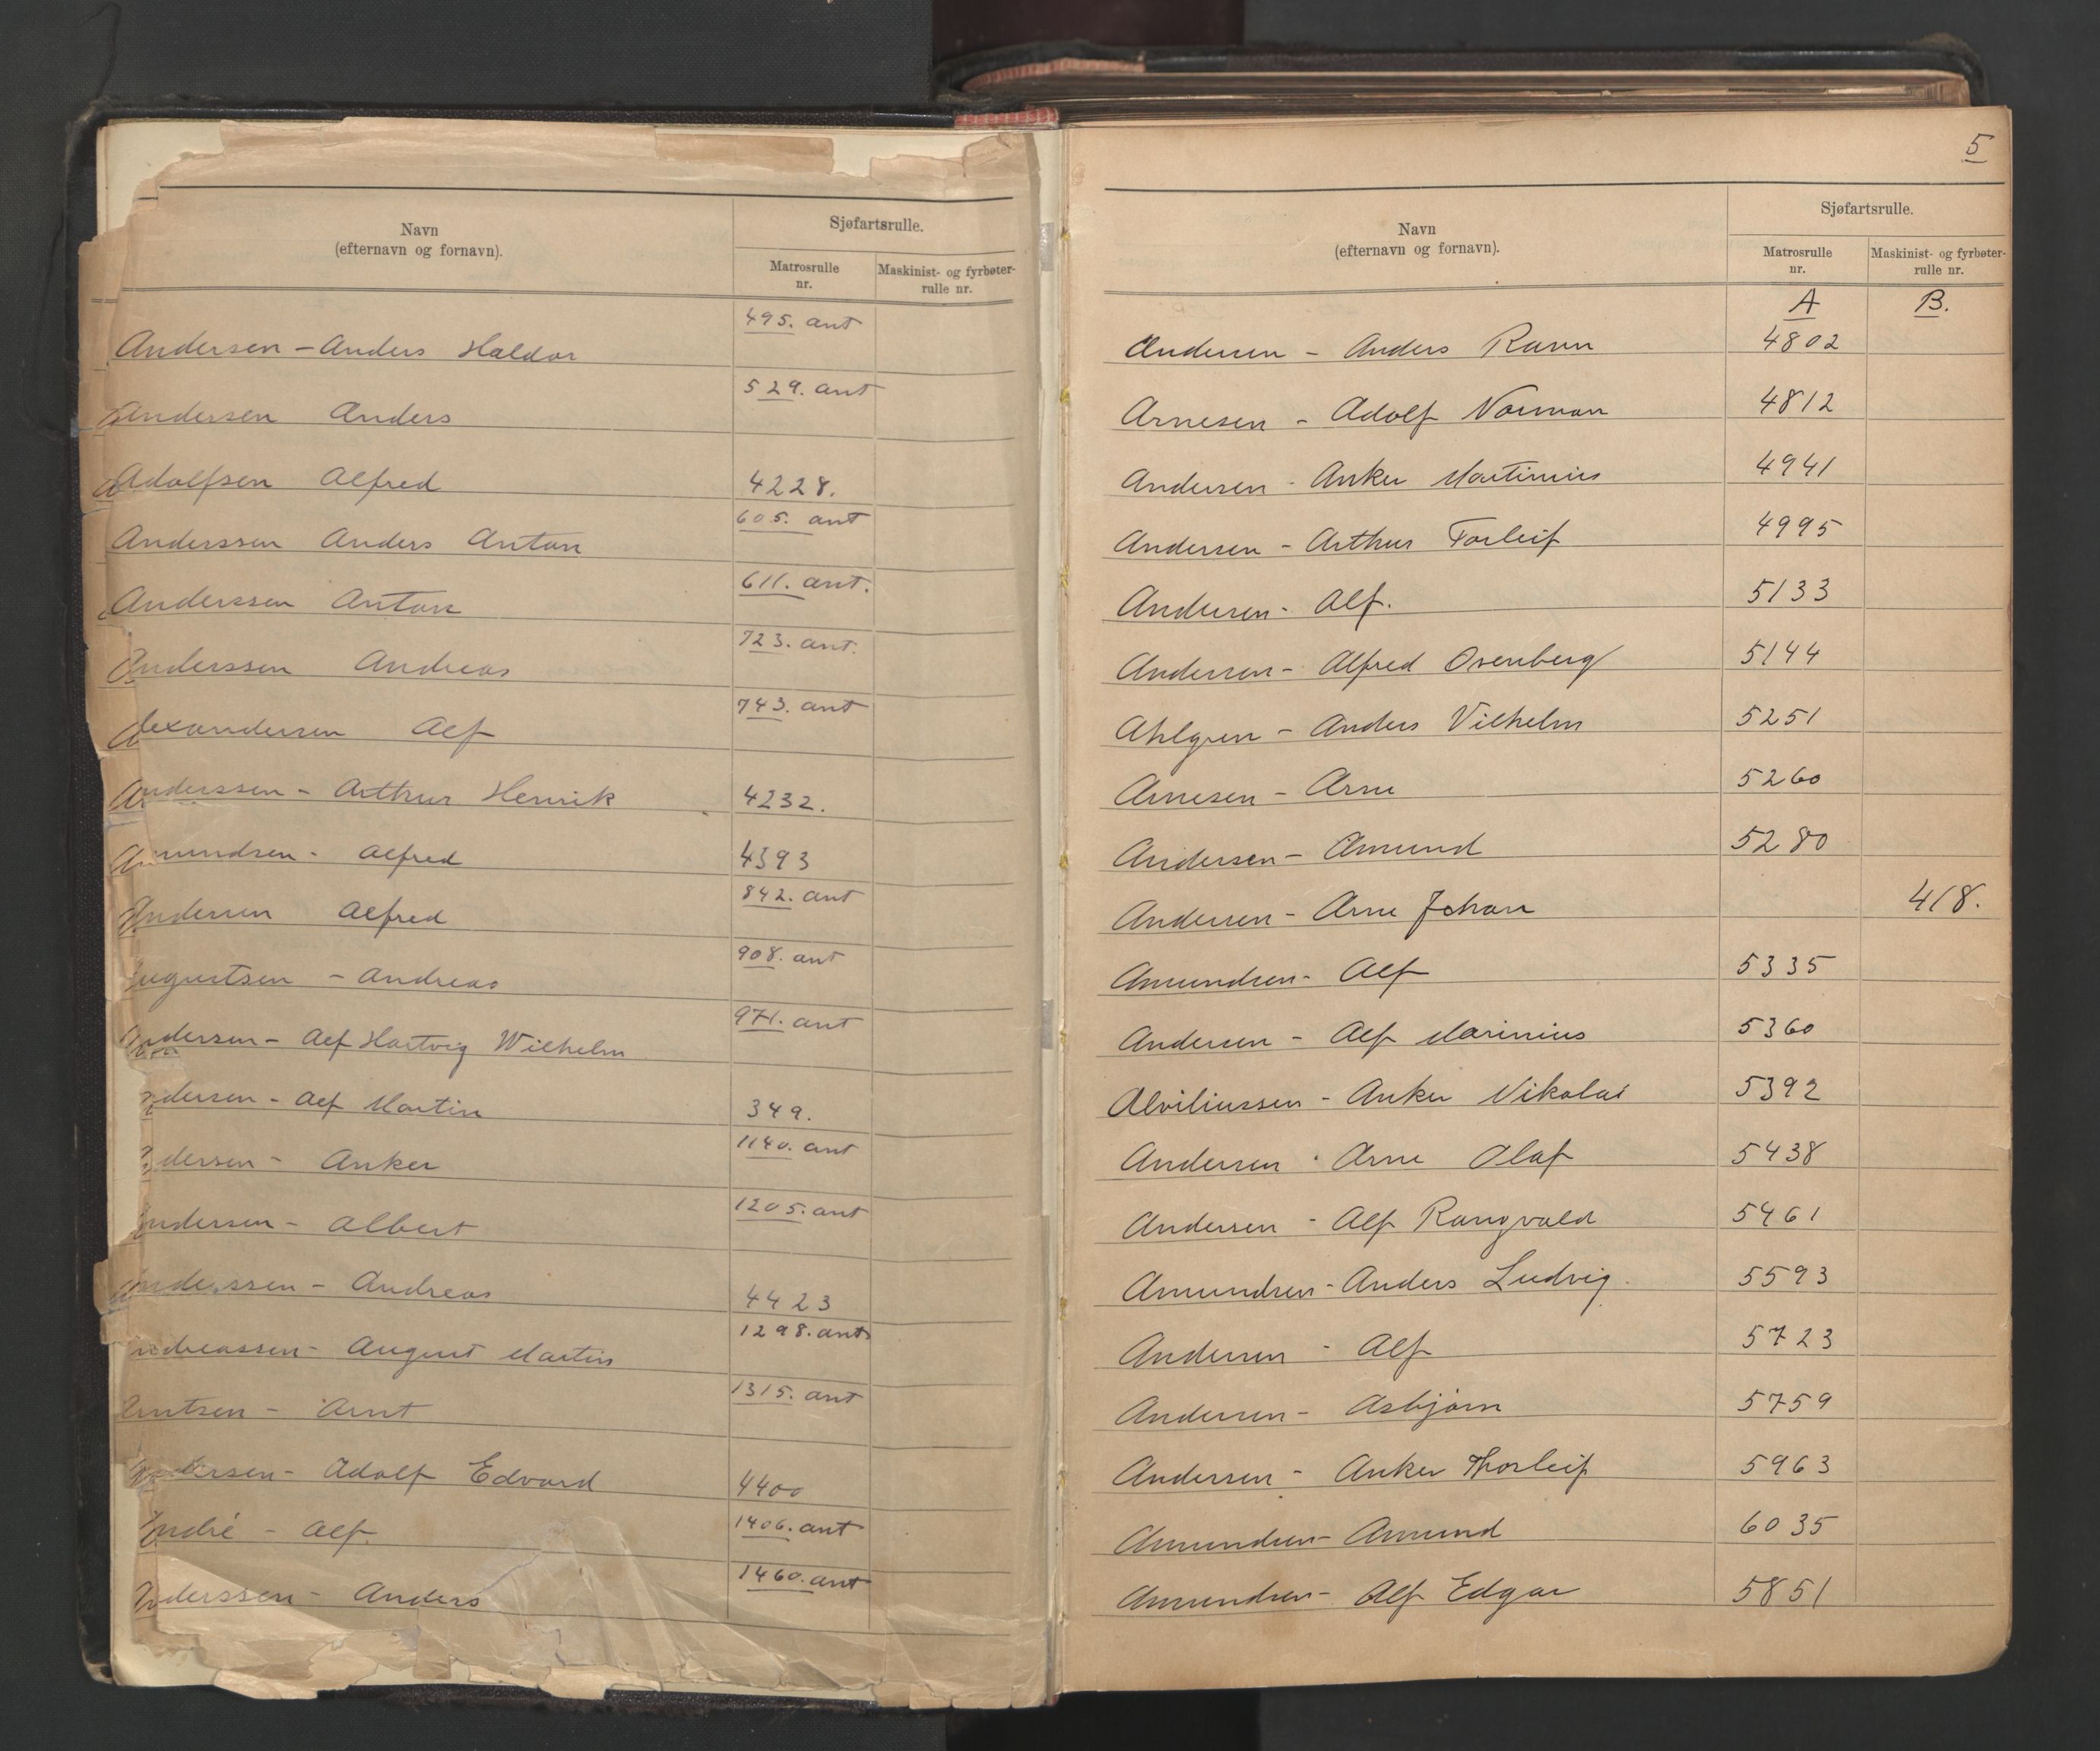 Navn
(efternavn og fornavn).
Sjøfartsrulle.
Matrosrulle nr.
Maskinist- og fyrbøter-rulle nr.
Andersen - Anders Haldor 495. ant
Andersen Anders 529. ant
Adolfsen Alfred 4228.
Anderssen Anders Anton 605. ant
Anderssen Anton 611. ant.
Anderssen Andreas 723. ant.
Alexandersen Alf 743. ant
Anderssen - Arthur Henrik 4232.
Amundsen - Alfred 4393
Andersen Alfred 842. ant
Augustsen - Andreas 908. ant
Andersen - Alf Hartvig Wilhelm 971. ant
ndersen - Alf Martin 349.
ndersen - Anker 1140. ant
Andersen - Albert 1205. ant
Anderssen - Andreas 4423
Andreassen - August Martin 1298. ant
Arntsen - Arnt 1315. ant
Andersen - Adolf Edvard 4400
André - Alf. 1406. ant
Anderssen - Anders 1460. ant
5
Navn
(efternavn og fornavn).
Sjøfartsrulle.
Matrosrulle nr.
Maskinist- og fyrbøter-rulle nr.
A B.
Andersen - Anders Ravn 4802
Arnesen - Adolf Norman 4812
Andersen - Anker Martinius 4941
Andersen - Arthur Torleif 4995
Andersen - Alf. 5133
Andersen - Alfred Osenberg 5144
Ahlgren - Anders Vilhelm 5251
Arnesen - Arne 5260
Andersen - Amund 5280
Andersen - Arne Johan 418.
Amundsen - Alf 5335
Andersen - Alf Marinius 5360
Alviliussen - Anker Nikolai 5392
Andersen - Arne Olaf 5438
Andersen - Alf Rangvald 5461
Amundsen - Anders Ludvig. 5593
Andersen - Alf 5723
Andersen - Asbjørn 5759
Andersen - Anker Thorleif 5963
Amundsen - Amund 6035
Amundsen - Alf Edgar 5851